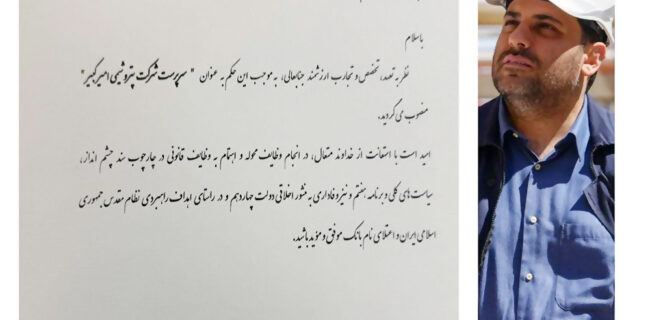 باسلام
نظر به تعهد، تخصص و تجارب ارزشمند جنابعالی، به موجب این حکم به عنوان " سرپرست شرکت پتروشیمی امیرکبیر"
منصوب می گردید.
امید است با استعانت از خداوند متعال، در انجام وظایف محوله و اهتمام به وظایف قانونی در چارچوب سند چشم انداز،
سیاست های کلی و برنامه هفتم و نیز وفاداری به منشور اخلاقی دولت چهاردهم و در راستای اهداف راهبردی نظام مقدس جمهوری
اسلامی ایران و اعتلای نام بانک موفق و مؤید باشید.